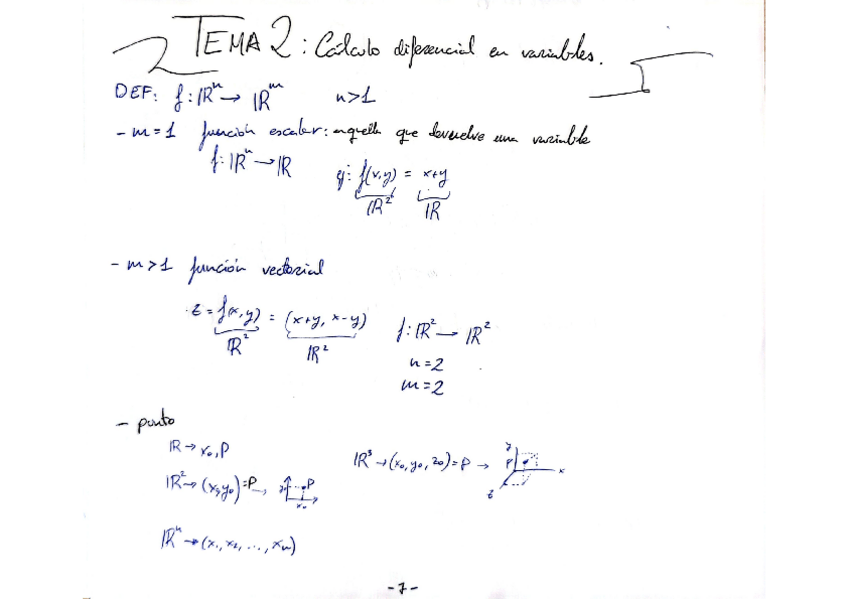 TEMA 2: Cálculo diferencial en variables.
DEF: f: ℝⁿ → ℝᵐ n>1
- m=1 función escalar: aquella que devuelve una variable
f: ℝⁿ → ℝ
ej: f(x,y) = x+y
ℝ² ℝ
- m>1 función vectorial
z = f(x,y) = (x+y, x-y) f: ℝ² → ℝ²
ℝ² ℝ²
n=2
m=2
- punto
ℝ → x₀, P
ℝ³ → (x₀, y₀, z₀) = P → y P x z
ℝ² → (x₀, y₀) = P → y₀ P x₀
ℝⁿ → (x₁, x₂, ..., xₙ)
-7-